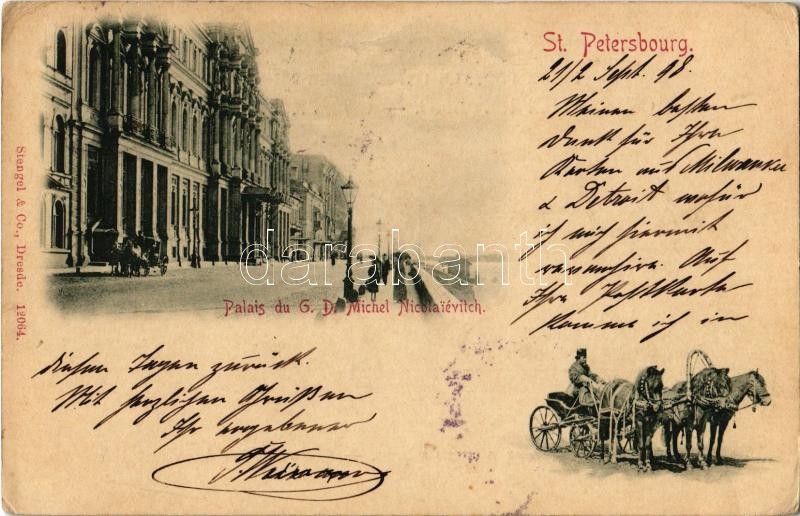 St. Petersbourg.
21/2 Sept. 98.
Meinen besten
Dank für Ihre
Karten aus Milwaukee
& Detroit wofür
ich mich hiermit
revanchire. Auf
Ihre Postkarte
komme ich in
diesen Tagen zurück.
Mit herzlichen Grüßen
Ihr ergebener
Palais du G. D. Michel Nicolaïévitch.
Stengel & Co., Dresde. 12064.
darabanth.com